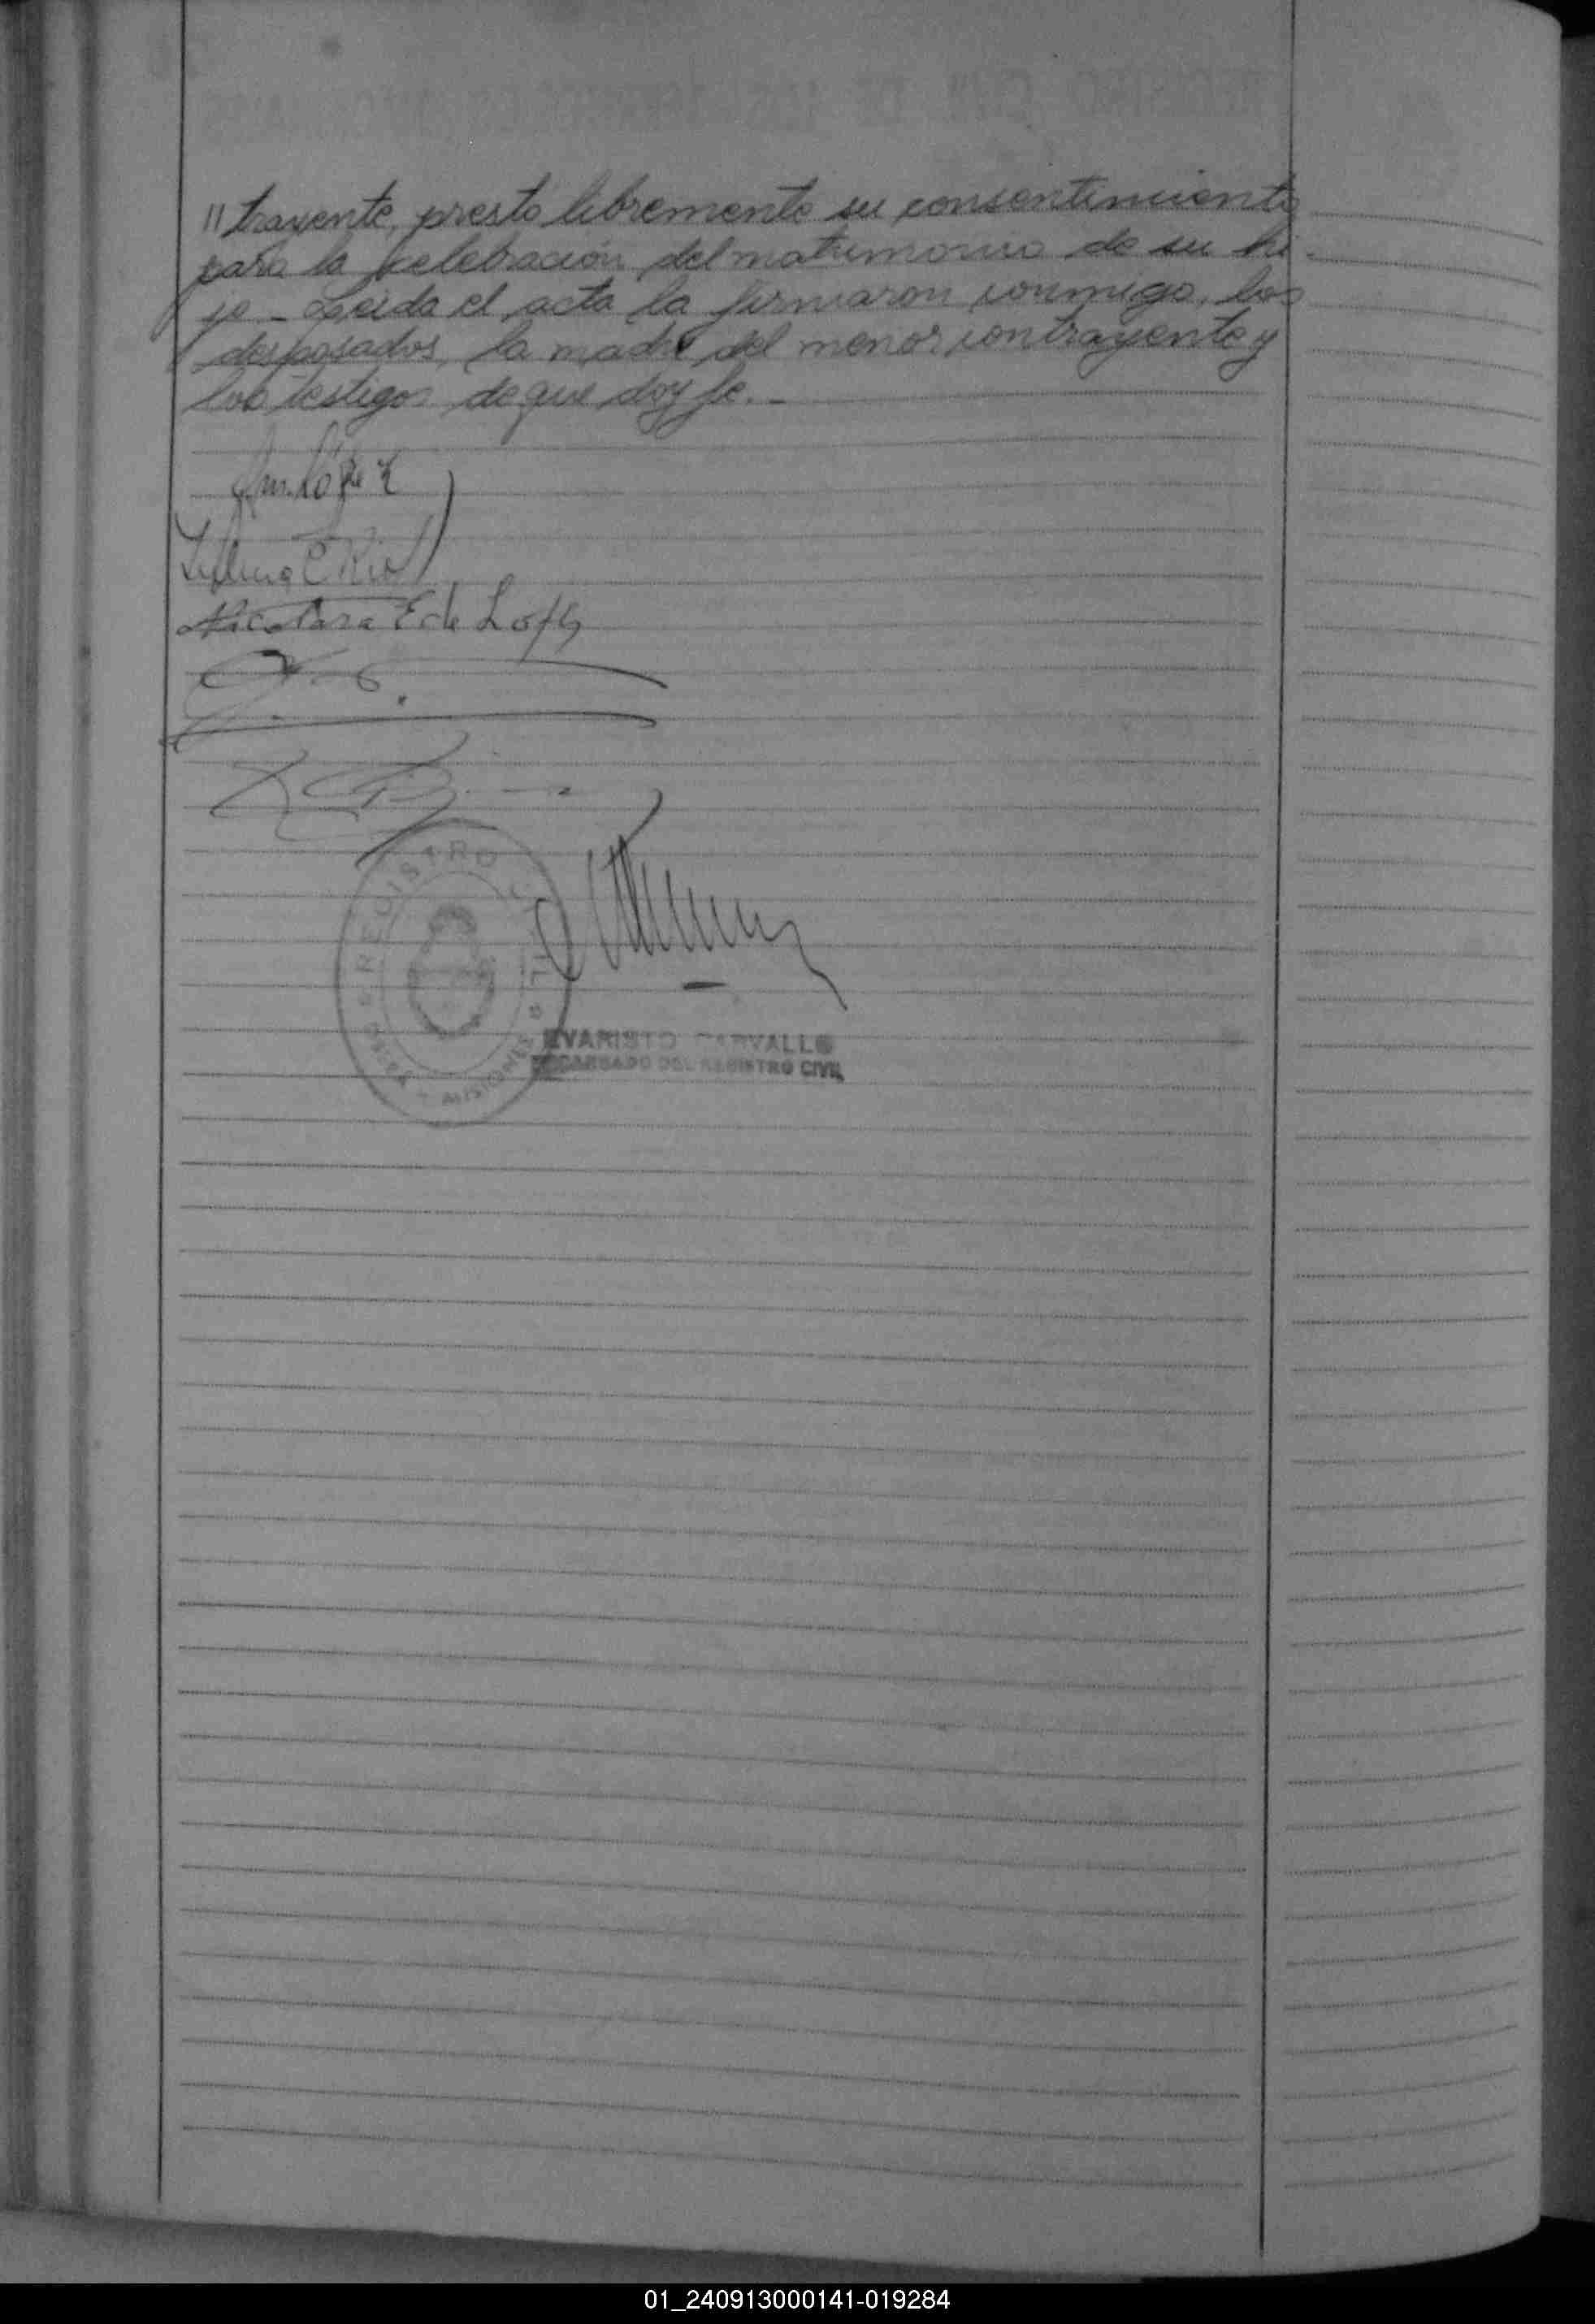 // trayente, prestó libremente su consentimiento
para la celebración del matrimonio de su hi-
jo - Leída el acta la firmaron conmigo, los
desposados, la madre del menor contrayente y
los testigos de que doy fe. -
López
E de López
REGISTRO CIVIL
MISIONES
EVARISTO CARVALLO
ENCARGADO DEL REGISTRO CIVIL
01_240913000141-019284